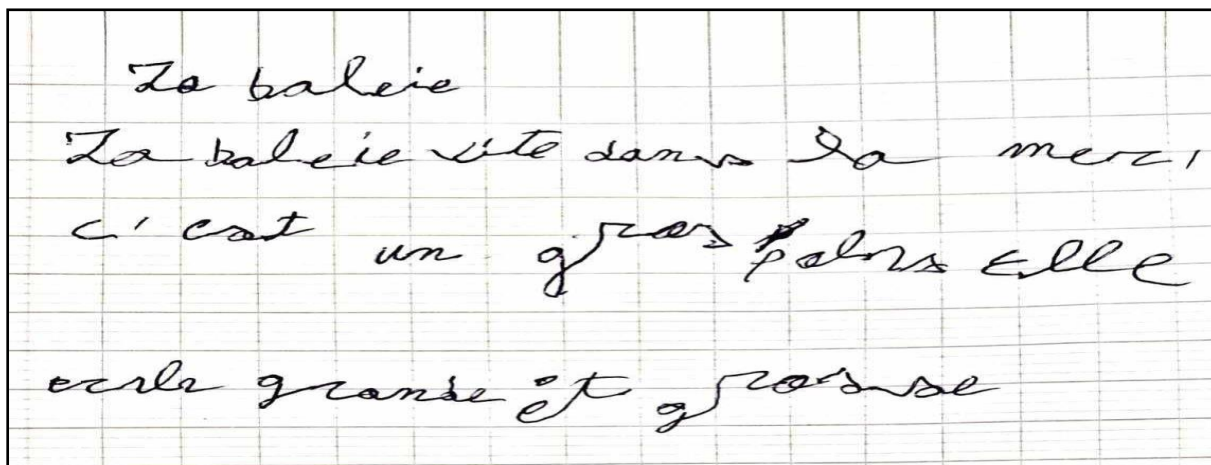 La baleie
La baleie vite dans la mer,
c'est un gros elle
grande et grosse